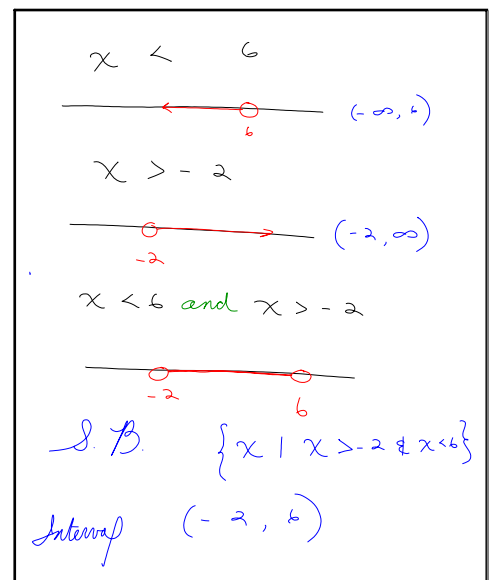 x < 6
6
(-∞, 6)
x > - 2
-2
(-2, ∞)
x < 6 and x > - 2
-2
6
S. B. {x | x > -2 & x < 6}
Interval (- 2, 6)